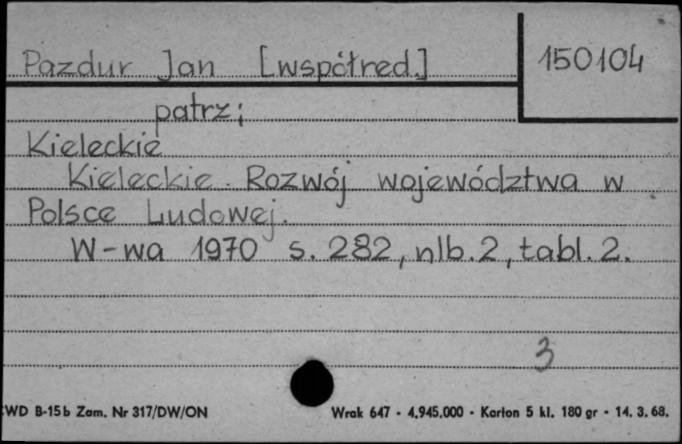 Pazdur Jan [współred.]
150104
patrz;
Kieleckie
Kieleckie. Rozwój województwa w
Polsce Ludowej.
W-wa 1970 s. 282, nlb. 2, tabl. 2.
3
WD B-15b Zam. Nr 317/DW/ON
Wrak 647 - 4.945.000 - Karton 5 kl. 180 gr - 14. 3. 68.